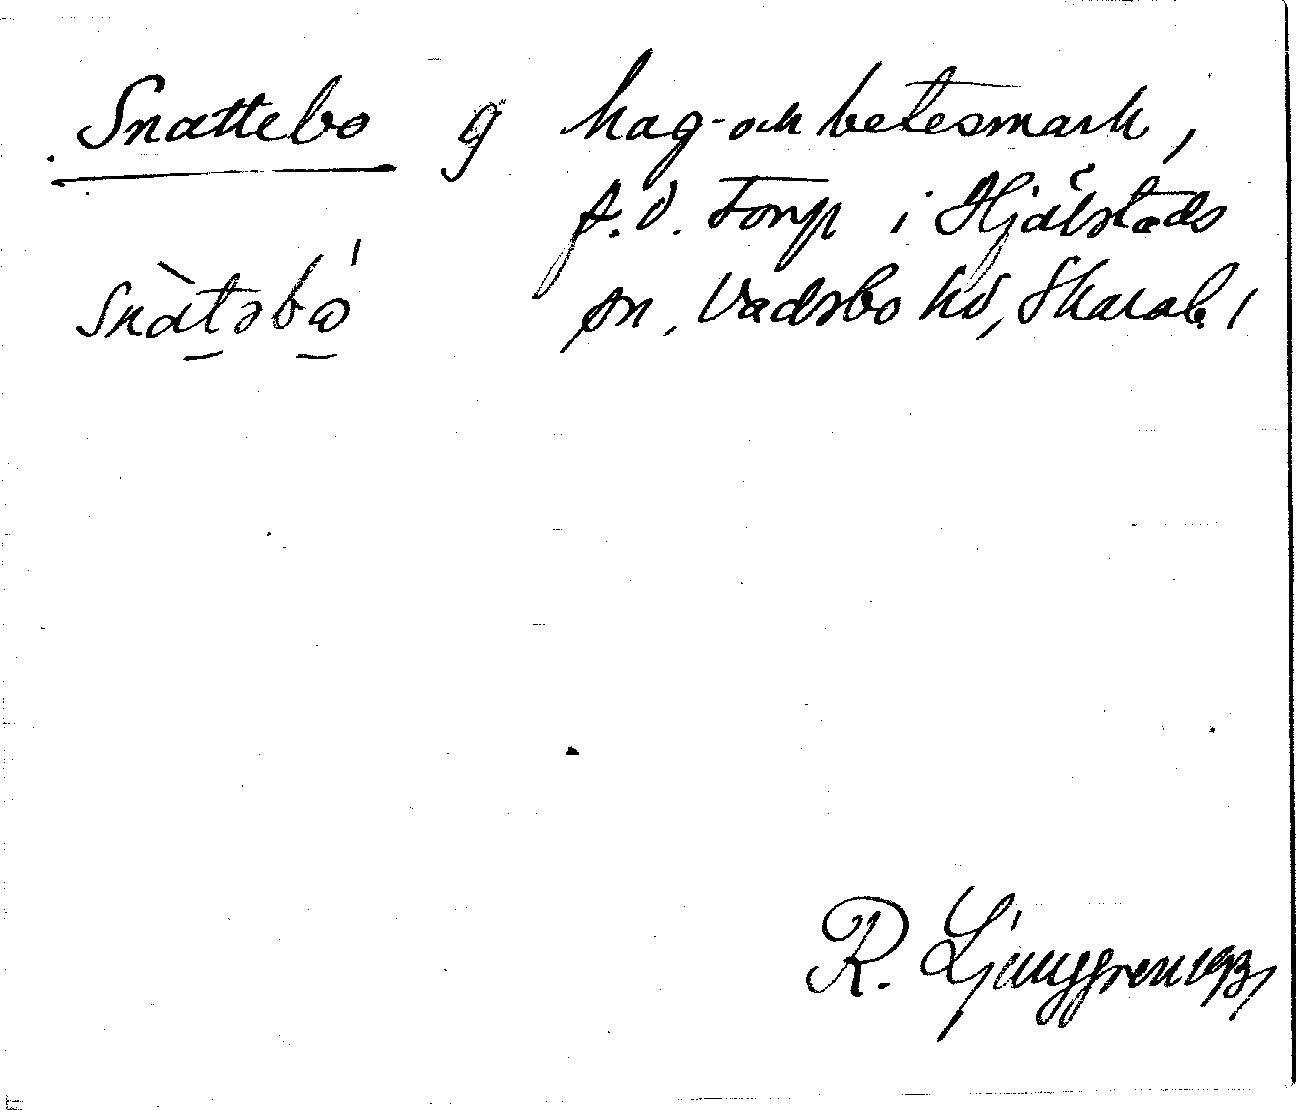 Snattebo g hag- och betesmark,
f.d. Torp i Hjälstads
snàtsbo̍ sn, Vadsbo hd, Skarab. l
R. Ljunggren 1931